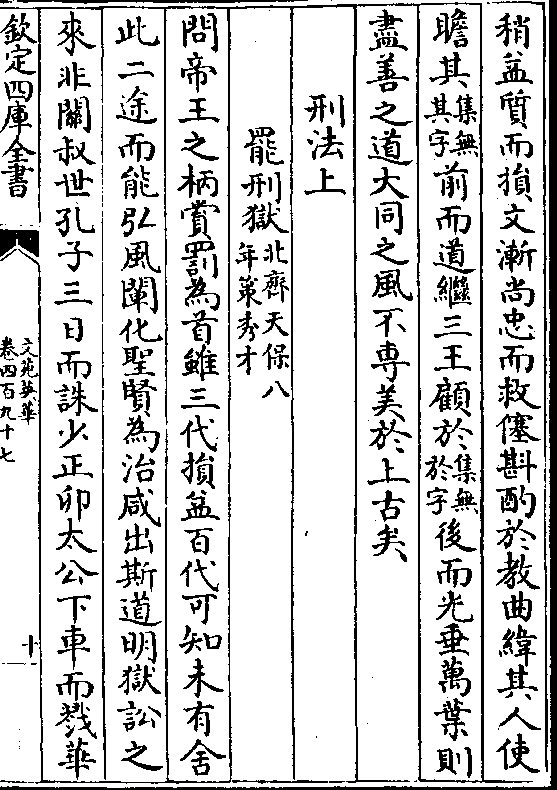 稍益質而損文漸尚忠而救僿斟酌於教曲緯其人使
瞻其集無其字前而道繼三王顧於集無於字後而光垂萬葉則
盡善之道大同之風不専美於上古矣
刑法上
罷刑獄北齊天保八年策秀才
問帝王之柄賞罰為首雖三代損益百代可知未有舍
此二途而能弘風闡化聖賢為治咸出斯道明獄訟之
來非關叔世孔子三日而誅少正卯太公下車而戮華
欽定四庫全書
文苑英華
卷四百九十七
十一